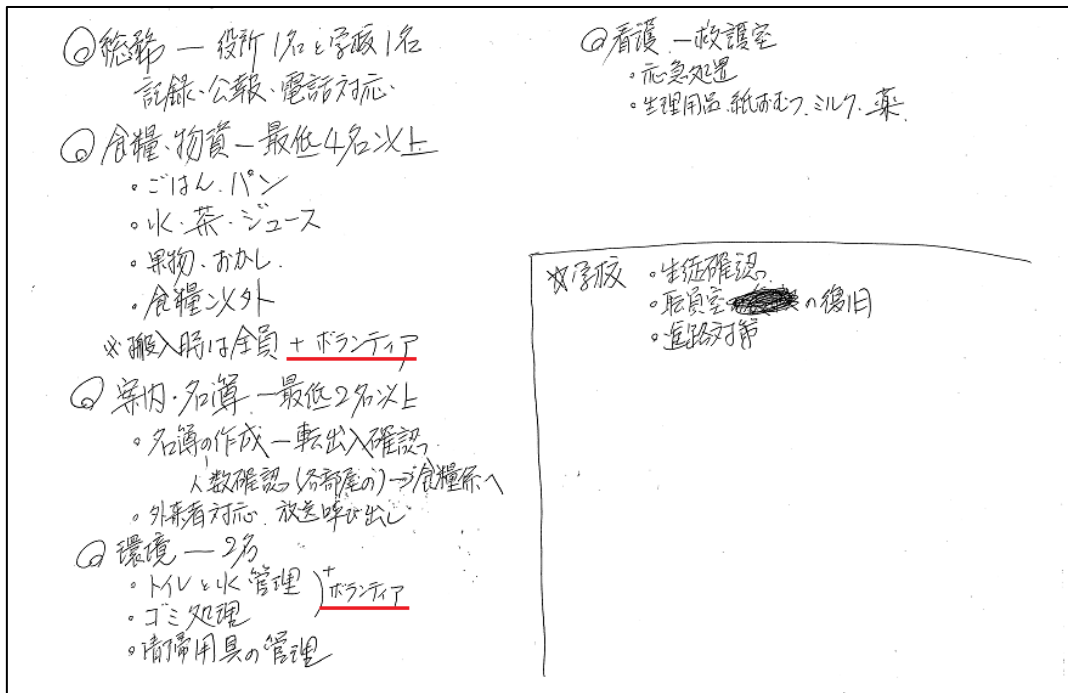 ◎総務 ― 役所1名と学校1名
記録・公報・電話対応
◎食糧・物資 ― 最低4名以上
・ごはん、パン
・水・茶・ジュース
・果物・おかし
・食糧以外
※搬入時は全員 + ボランティア
◎案内・名簿 ― 最低2名以上
・名簿の作成 ― 転出入確認
人数確認(各部屋の)→食糧係へ
・外来者対応、放送呼び出し
◎環境 ― 2名
・トイレと水管理
・ゴミ処理
+ボランティア
・清帚用具の管理
◎看護 ― 救護室
・応急処置
・生理用品、紙おむつ、ミルク、薬
☆学校 ・生徒確認
・職員室 の復旧
・進路対策